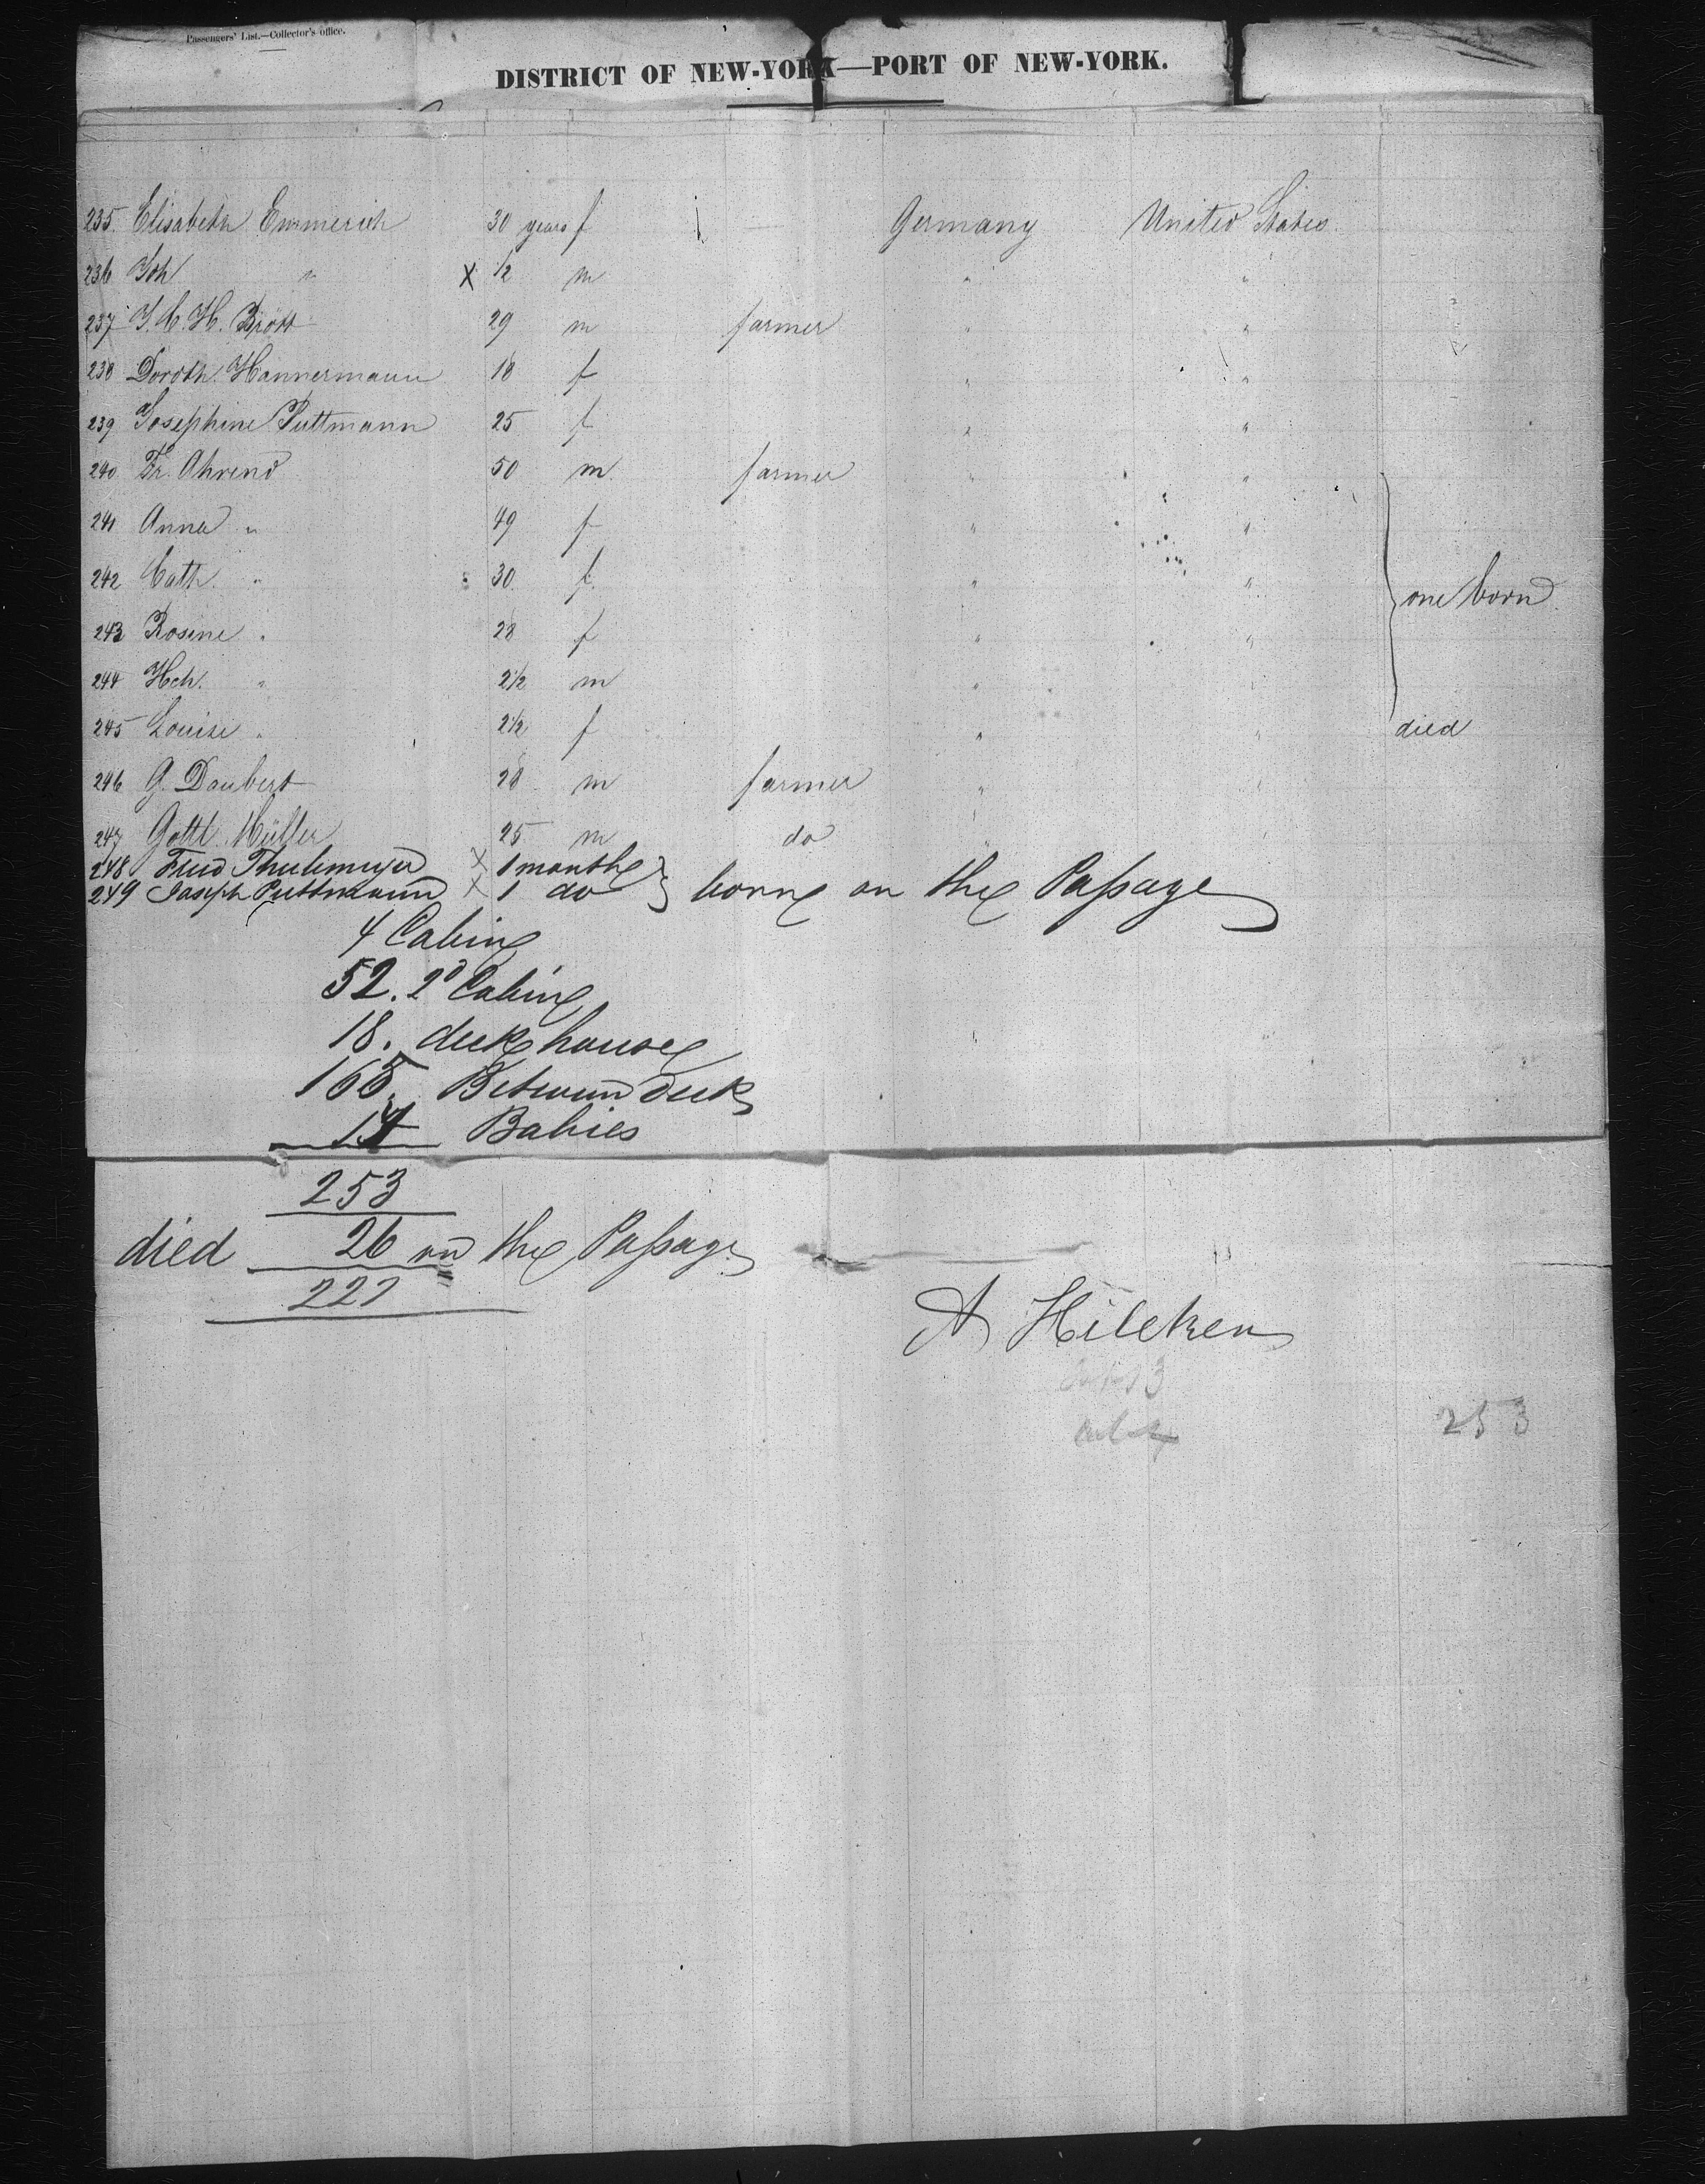 Passengers' List.—Collector's office.
DISTRICT OF NEW-YORK—PORT OF NEW-YORK.
235. Elisabeth Emmerich 30 years f Germany United States
236 Joh " X 1/2 m " "
237 J. C. H. Brött 29 m farmer " "
238 Doroth. Hannermann 18 f " "
239 Josephine Puttmann 25 f " "
240 Fr. Ahrend 50 m farmer " "
241 Anna " 49 f " "
242 Cath. " 30 f. " " one born
243 Rosine " 28 f " "
244 Hch. " 2 1/2 m " "
245 Louise " 2 1/2 f " " died
246 G. Daubert 28 m farmer " "
247 Gottl. Müller 25 m do " "
248 Fried Thulemeyer X 1 month
249 Joseph Puttmann X 1 do } born on the Passage
4 Cabin
52. 2d Cabin
18. deck house
165. Between deck
14 Babies
253
died 26 on the Passage
227
A Hilcken
253